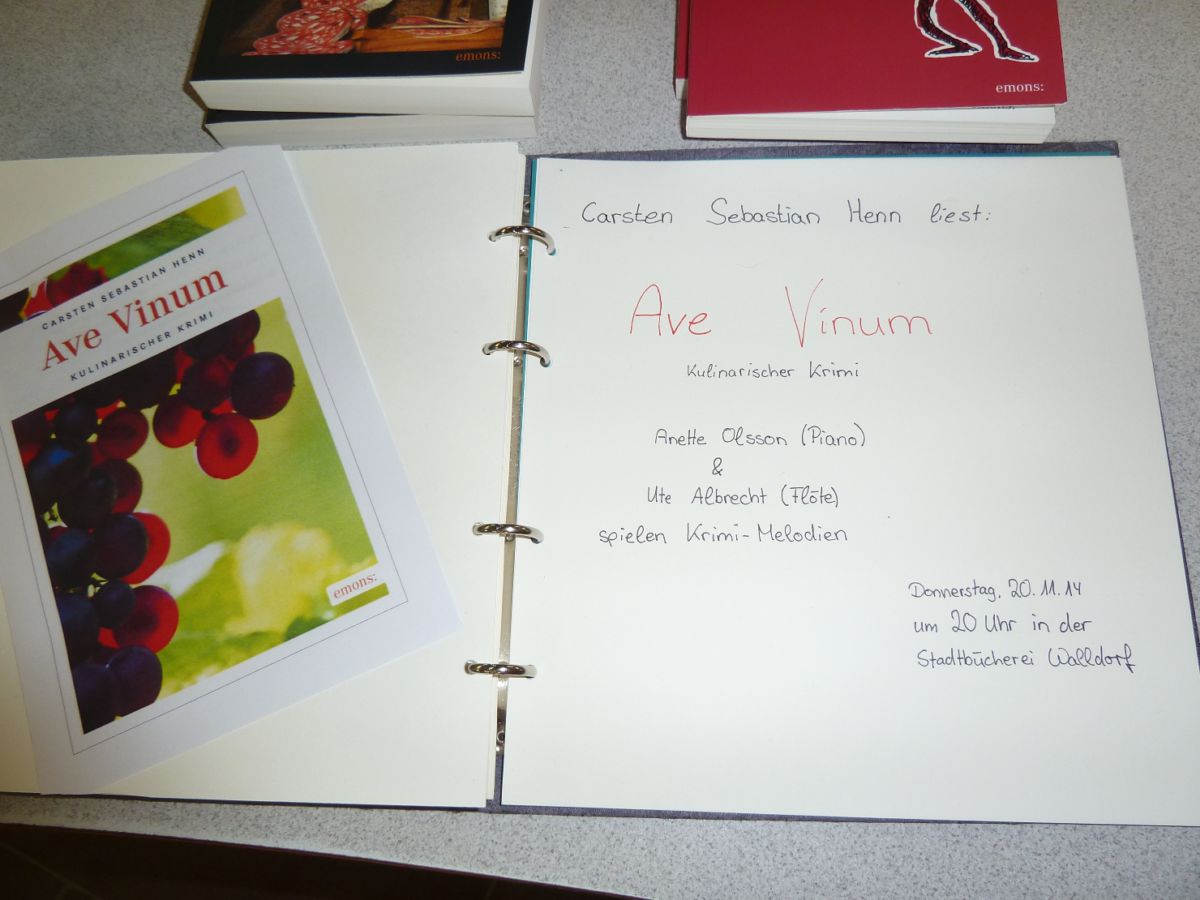 emons:
emons:
CARSTEN SEBASTIAN HENN
Ave Vinum
KULINARISCHER KRIMI
emons:
Carsten Sebastian Henn liest:
Ave Vinum
Kulinarischer Krimi
Anette Olsson (Piano)
&
Ute Albrecht (Flöte)
spielen Krimi-Melodien
Donnerstag, 20.11.14
um 20 Uhr in der
Stadtbücherei Walldorf